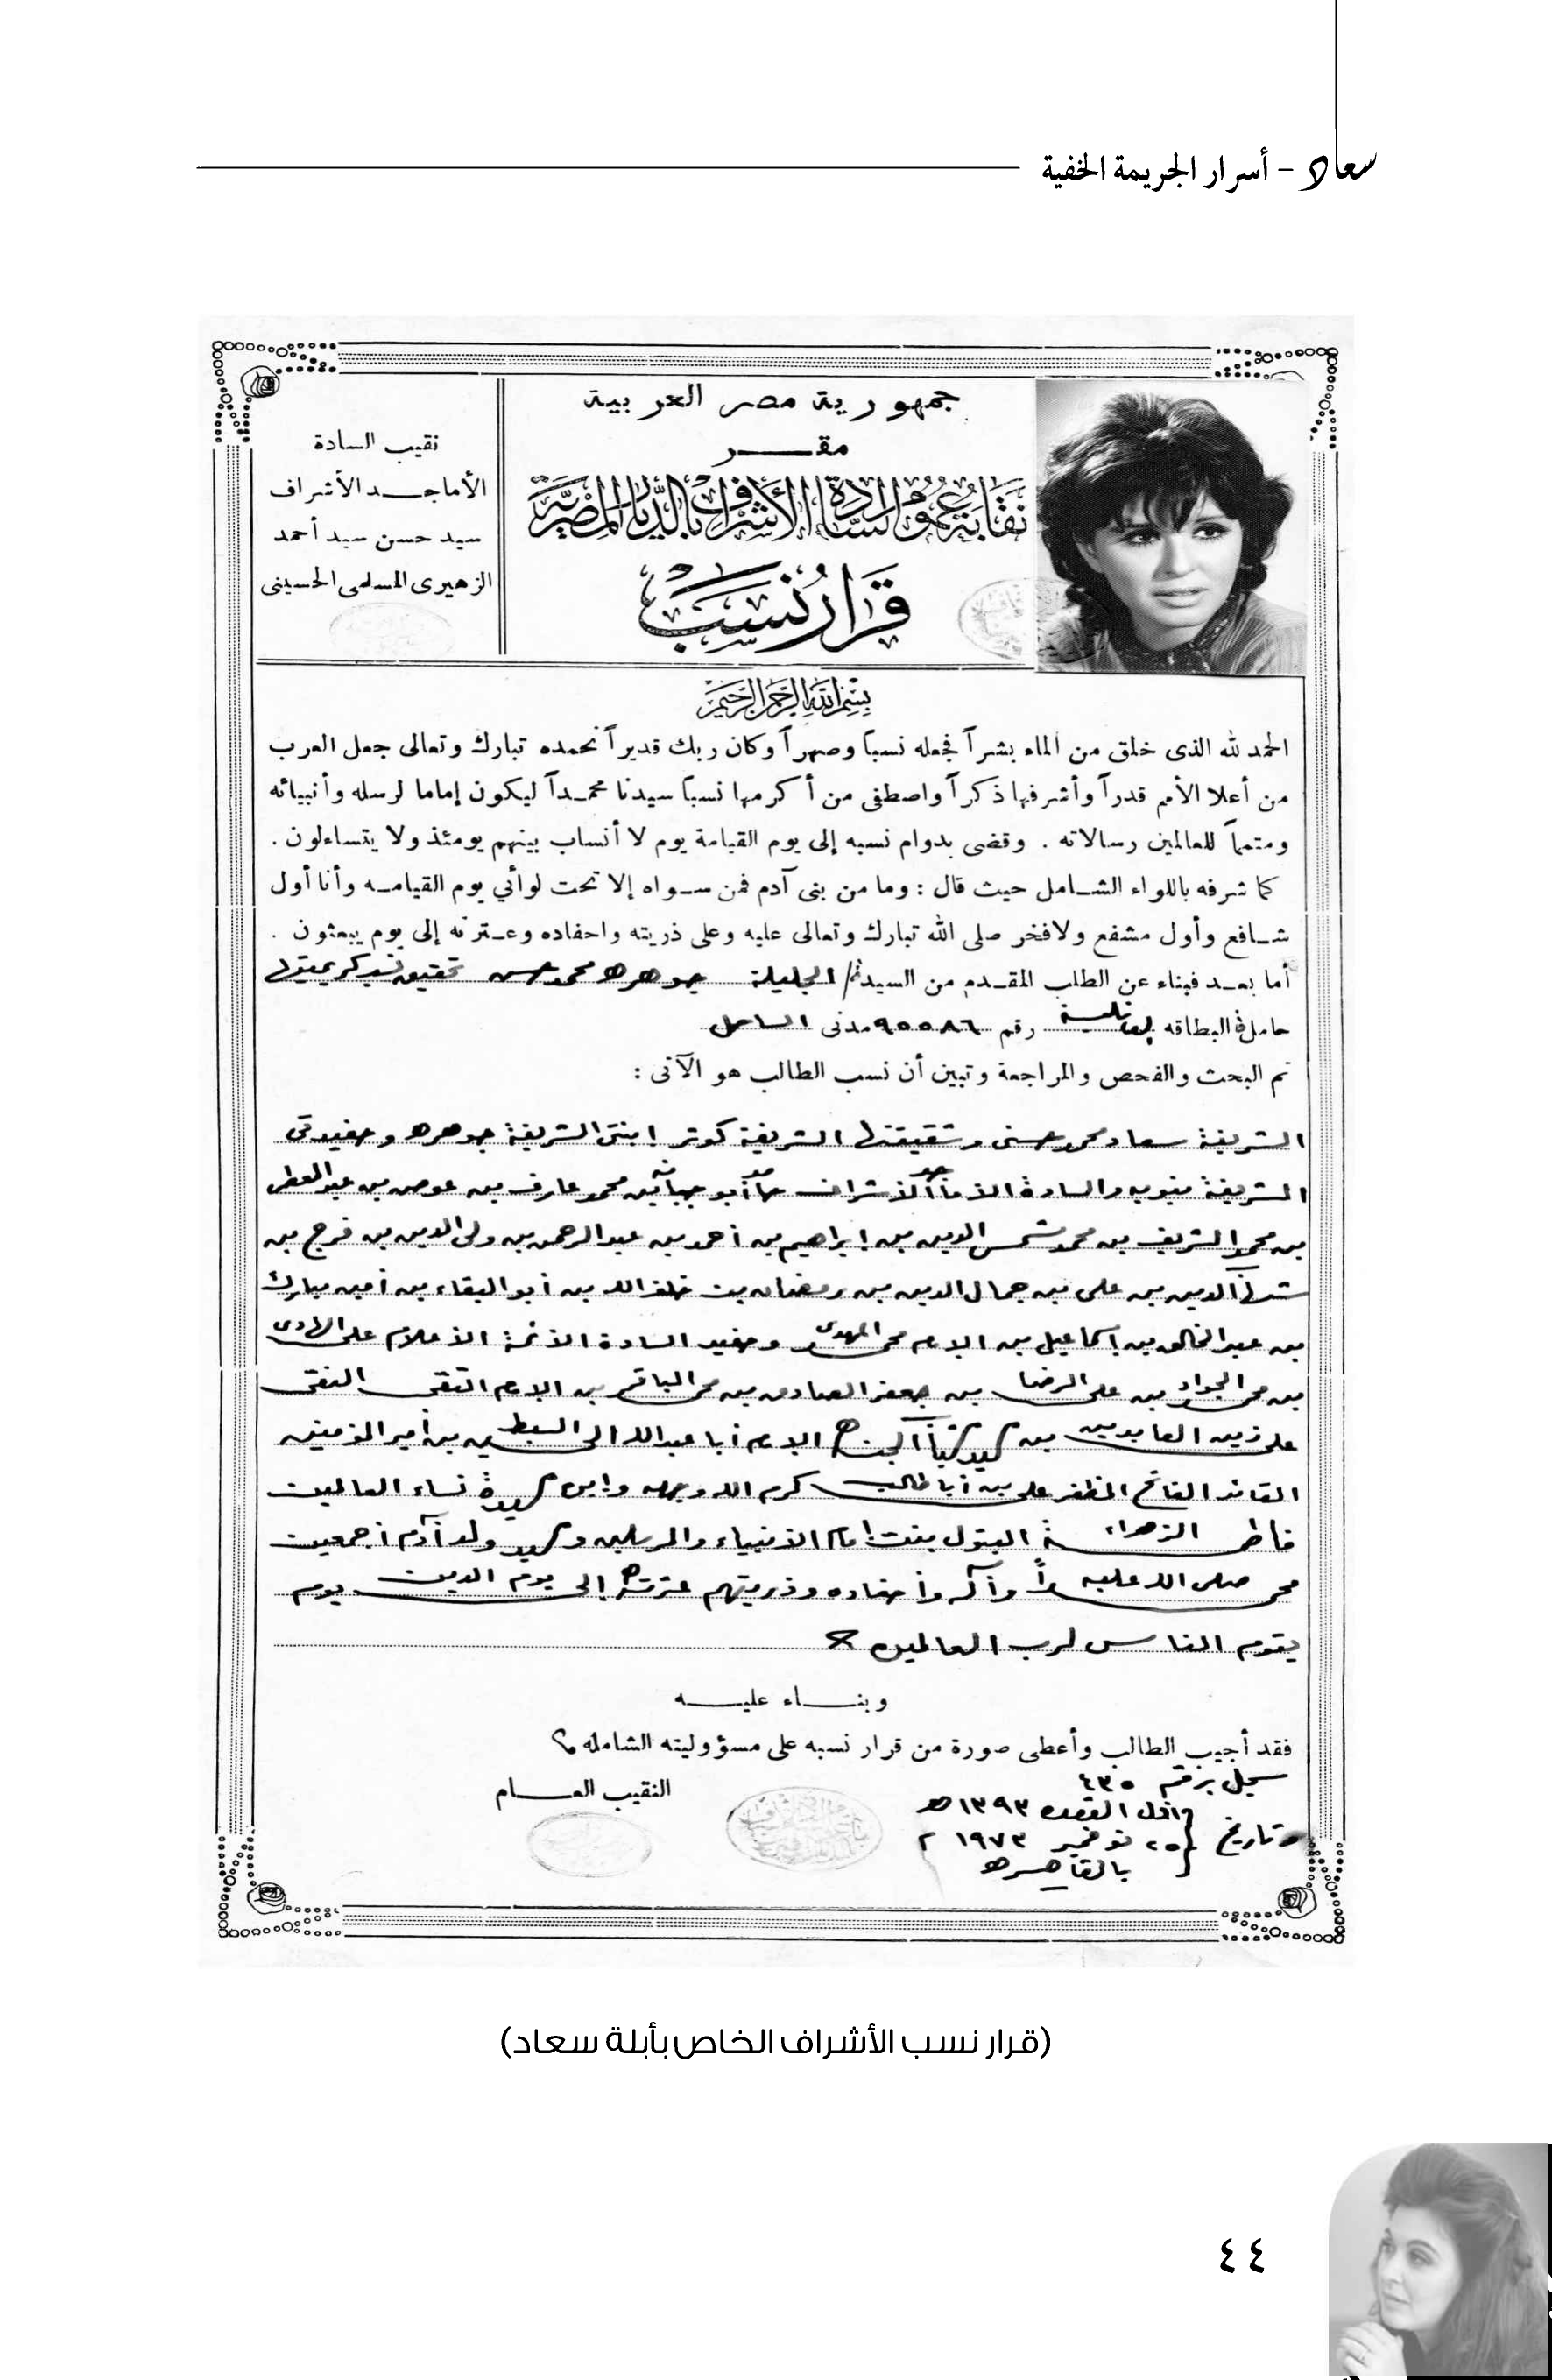 سعاد - أسرار الجريمة الخفية
جمهورية مصر العربية
مقـــر
نقابة عموم السادة الأشراف بالديار المصرية
قرار نسب
نقيب السادة
الأماجـــد الأشراف
سيد حسن سيد أحمد
الزهيرى المسلمى الحسينى
بسم الله الرحمن الرحيم
الحمد لله الذى خلق من الماء بشراً فجعله نسباً وصهراً وكان ربك قديراً نحمده تبارك وتعالى جعل العرب
من أعلا الأمم قدراً وأشرفها ذكراً واصطفى من أكرمها نسباً سيدنا محمـداً ليكون إماما لرسله وأنبيائه
ومتمماً للعالمين رسالاته . وقضى بدوام نسبه إلى يوم القيامة يوم لا أنساب بينهم يومئذ ولا يتساءلون .
كما شرفه باللواء الشـامل حيث قال : وما من بنى آدم فمن سـواه إلا تحت لوائي يوم القيامـه وأنا أول
شـافع وأول مشفع ولافخر صلى الله تبارك وتعالى عليه وعلى ذريته واحفاده وعـترته إلى يوم يبعثون .
أما بعـد فبناء عن الطلب المقـدم من السيدة/ الجليلة جوهره محمد حسن تحقيق نسب كريمتيها
حاملة البطاقه عائلية رقم ٩٥٥٨٦ مدنى الساحل
تم البحث والفحص والمراجعة وتبين أن نسب الطالب هو الآتى :
الشريفة سعاد محمد حسنى وشقيقتها الشريفة كوثر إبنتى الشريفة جوهره وحفيدتى
الشريفة والسادة الأماجد الأشراف محمد عارف بن عوض بن عبد المعطى
بن محمد الشريف بن محمد شمس الدين بن إبراهيم بن أحمد بن عبد الرحمن بن ولى الدين بن فرج بن
شرف الدين بن على بن جمال الدين بن رمضان بن خلف الله بن أبو البقاء بن أمين مبارك
بن عبد الخالق بن إسماعيل بن الإمام محمد المهدى وحفيد السادة الأئمة الأعلام على الهادى
بن محمد الجواد بن على الرضا بن جعفر الصادق بن محمد الباقر بن الإمام التقى النقى
على زين العابدين بن سيد شباب الجنة الإمام أبا عبد الله السبط بن أمير المؤمنين
القائد الفاتح المظفر على بن أبا طالب كرم الله وجهه وابن سيدة نساء العالمين
فاطمة الزهراء البتول بنت إمام الأنبياء والمرسلين وسيد ولد آدم أجمعين
محمداً صلى الله عليه وآله وأحفاده وذريتهم عترته إلى يوم الدين يوم
يقوم الناس لرب العالمين
وبنـــاء عليـــه
فقد أجيب الطالب وأعطى صورة من قرار نسبه على مسؤوليته الشامله
سجل برقم ٤٣٥
وتاريخ أول القعده ١٣٩٣هـ
٢٥ نوفمبر ١٩٧٣ م
بالقاهره
النقيب العـــام
(قرار نسب الأشراف الخاص بأبلة سعاد)
٤٤